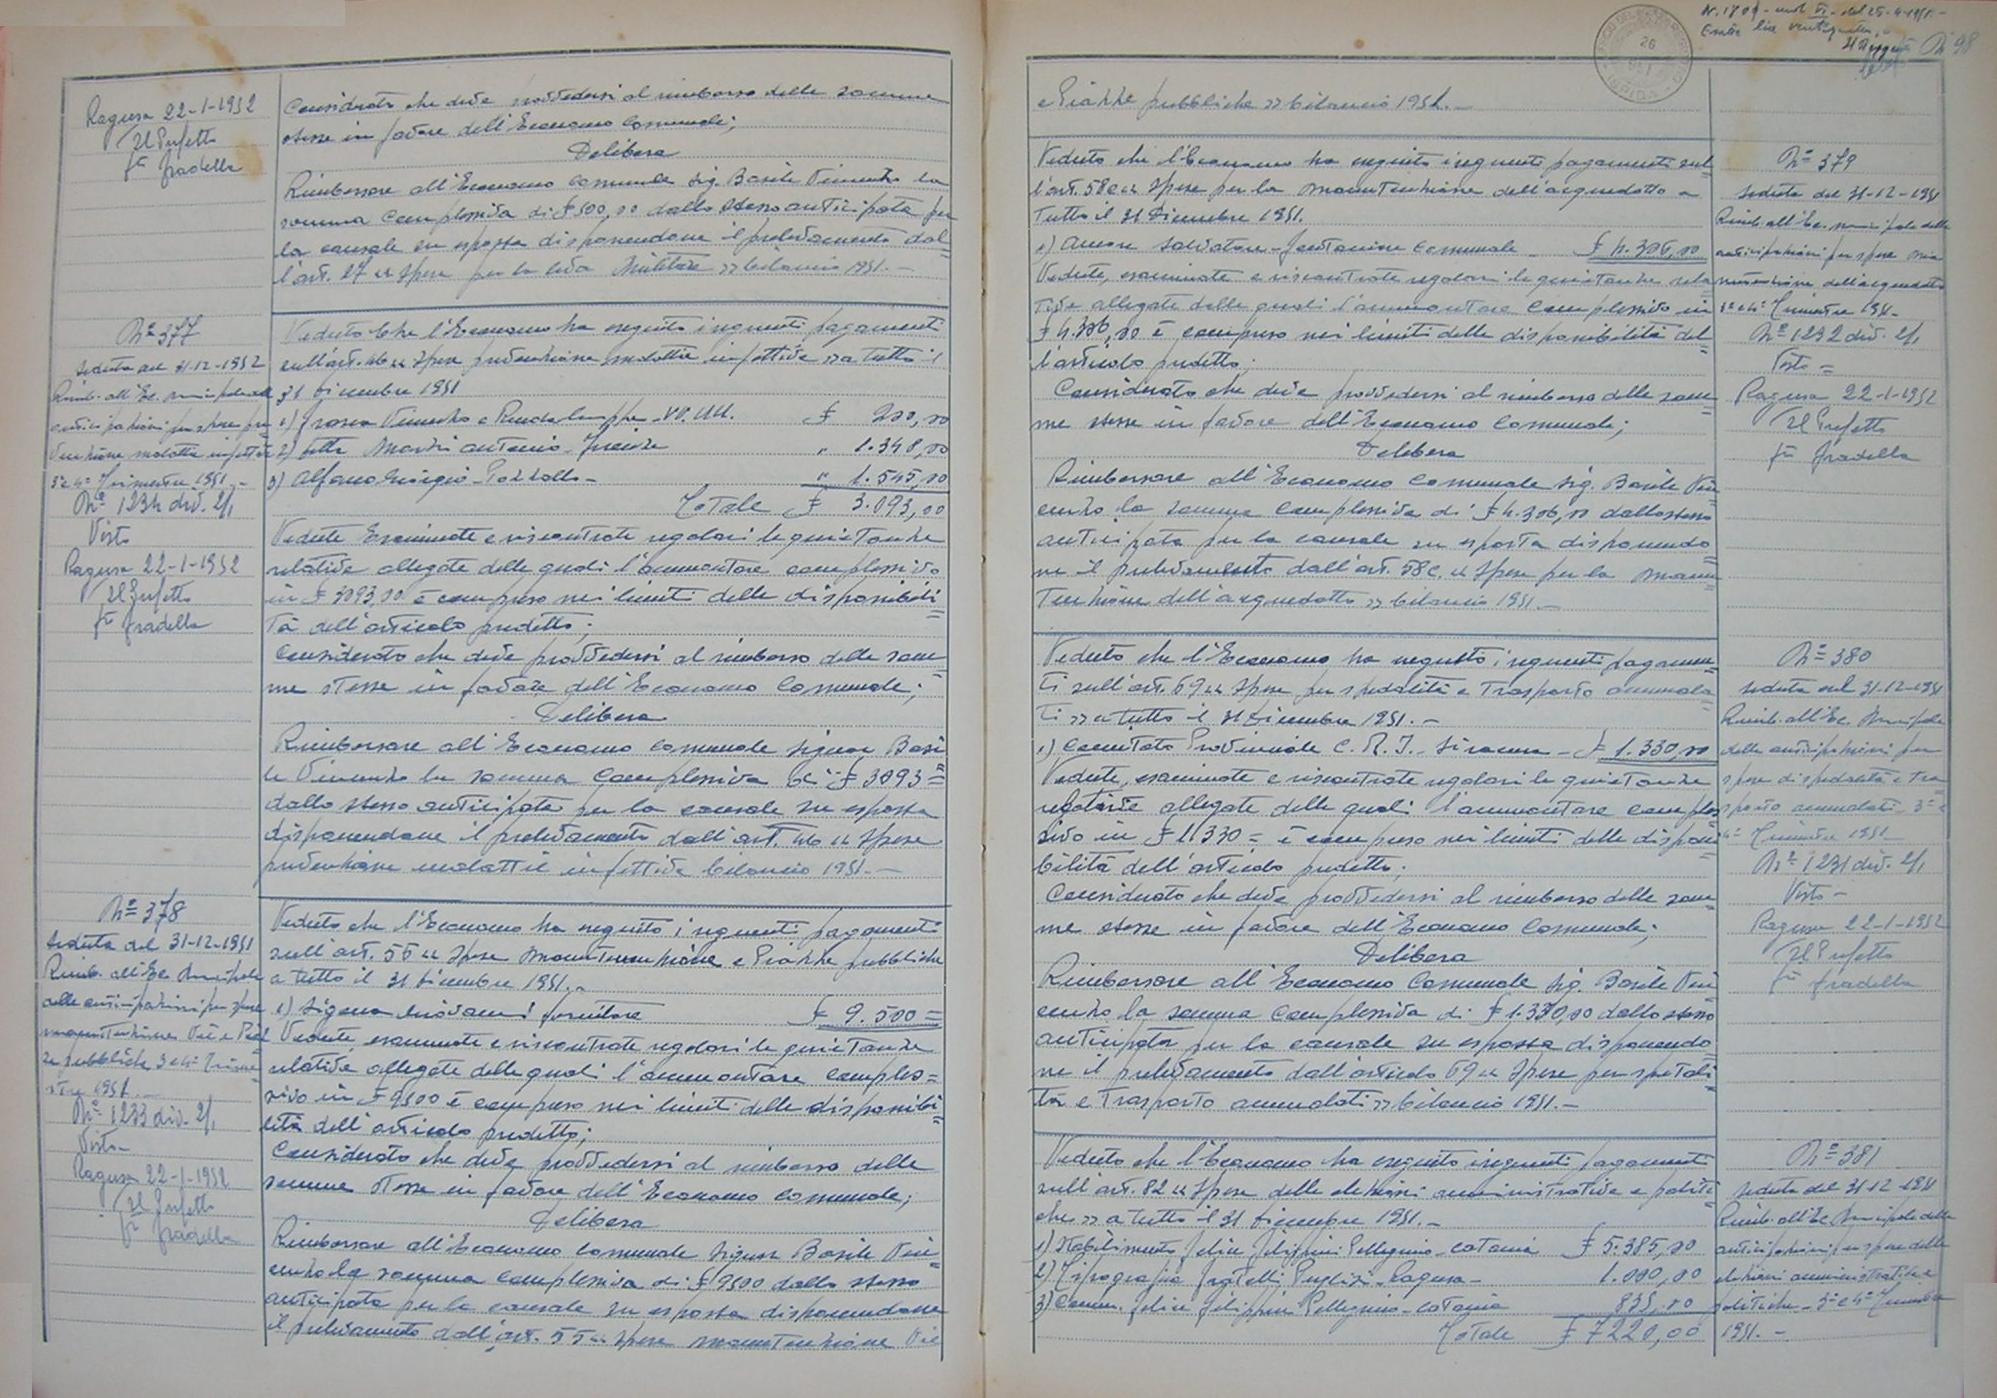 Ragusa 22-1-1952
Il Prefetto
fto Gradella
Considerato che deve provvedersi al rimborso delle somme
stesse in favore dell'Economo Comunale;
Delibera
Rimborsare all'Economo Comunale Sig. Basile Vincenzo la
somma complessiva di £ 500,00 dallo stesso anticipata per
la causale su esposta disponendone il prelevamento dal
l'art. 27 " Spese per la leva Militare " bilancio 1951. -
Nº 377
Seduta del 31-12-1952
Rimb. all'Ec. Municipale delle
anticipazioni per spese pre
venzione malattie infettive
3º e 4º Trimestre 1951. -
Nº 1234 div. 2/1
Visto
Ragusa 22-1-1952
Il Prefetto
fto Gradella
Veduto che l'Economo ha eseguito i seguenti pagamenti
sull'art. 46 " Spese prevenzione malattie infettive " a tutto il
31 Dicembre 1951
1) Vincenzo e - VV. UU. £ 200,00
2) Antonio - " 1.348,00
3) Alfano Giorgio - Pozzallo - " 1.545,00
Totale £ 3.093,00
Vedute Esaminate e riscontrate regolari le quietanze
relative allegate delle quali l'ammontare complessivo
in £ 3093,00 è compreso nei limiti delle disponibili
tà dell'articolo predetto;
Considerato che deve provvedersi al rimborso delle som=
me stesse in favore dell'Economo Comunale;
Delibera
Rimborsare all'Economo Comunale Signor Basi
le Vincenzo la somma complessiva di £ 3093=
dallo stesso anticipata per la causale su esposta
disponendone il prelevamento dall'art. 46 " Spese
prevenzione malattie infettive bilancio 1951. -
Nº 378
Seduta del 31-12-1951
Rimb. all'Ec. Municipale
delle anticipazioni per spese
manutenzione Vie e Piaz=
ze pubbliche 3 e 4º Trime=
stre 1951. -
Nº 1233 div. 2/1
Visto -
Ragusa 22-1-1952
Il Prefetto
fto Gradella
Veduto che l'Economo ha eseguito i seguenti pagamenti
sull'art. 55 " Spese Manutenzione e Piazze pubbliche
a tutto il 31 Dicembre 1951. -
1) Sigona Giovanni fornitore £ 9.500=
Vedute, esaminate e riscontrate regolari le quietanze
relative allegate delle quali l'ammontare comples=
sivo in £ 9500 è compreso nei limiti delle disponibi=
lità dell'articolo predetto;
Considerato che deve provvedersi al rimborso delle
somme stesse in favore dell'Economo Comunale;
Delibera
Rimborsare all'Economo Comunale Signor Basile Vin=
cenzo la somma complessiva di £ 9500 dallo stesso
anticipata per la causale su esposta disponendone
il prelevamento dall'art. 55 " Spese manutenzione Vie
Nº 98
e Piazze pubbliche " bilancio 1951. -
Veduto che l'Economo ha eseguito i seguenti pagamenti sul=
l'art. 58c " Spese per la Manutenzione dell'acquedotto a
tutto il 31 Dicembre 1951.
1) Amore Salvatore - fontaniere Comunale £ 4.306,00
Vedute, esaminate e riscontrate regolari le quietanze rela=
tive allegate delle quali l'ammontare complessivo in
£ 4.306,00 è compreso nei limiti delle disponibilità del=
l'articolo predetto;
Considerato che deve provvedersi al rimborso delle som=
me stesse in favore dell'Economo Comunale;
Delibera
Rimborsare all'Economo Comunale Sig. Basile Vin=
cenzo la somma complessiva di £ 4.306,00 dallo stesso
anticipata per la causale su esposta disponendo=
ne il prelevamento dall'art. 58c. " Spese per la Manu=
tenzione dell'acquedotto " bilancio 1951. -
Nº 379
Seduta del 31-12-1951
Rimb. all'Ec. Municipale delle
anticipazioni per spese ma
nutenzione dell'acquedotto
3º e 4º Trimestre 1951. -
Nº 1232 div. 2/1
Visto =
Ragusa 22-1-1952
Il Prefetto
fto Gradella
Veduto che l'Economo ha eseguito i seguenti pagamen=
ti sull'art. 69 " Spese per spedalità e Trasporto ammala=
ti " a tutto il 31 Dicembre 1951. -
1) Comitato Provinciale C. R. I. - Siracusa - £ 1.330,00
Vedute, esaminate e riscontrate regolari le quietanze
relative allegate delle quali l'ammontare comples=
sivo in £ 1.330= è compreso nei limiti delle disponi=
bilità dell'articolo predetto;
Considerato che deve provvedersi al rimborso delle som=
me stesse in favore dell'Economo Comunale;
Delibera
Rimborsare all'Economo Comunale Sig. Basile Vin=
cenzo la somma complessiva di £ 1.330,00 dallo stesso
anticipata per la causale su esposta disponendo=
ne il prelevamento dall'articolo 69 " Spese per spedali=
tà e Trasporto ammalati " bilancio 1951. -
Nº 380
Seduta del 31-12-1951
Rimb. all'Ec. Municipale
delle anticipazioni per
spese di spedalità e tra
sporto ammalati 3º e
4º Trimestre 1951
Nº 1231 div. 2/1
Visto -
Ragusa 22-1-1952
Il Prefetto
fto Gradella
Veduto che l'Economo ha eseguito i seguenti pagamenti
sull'art. 82 " Spese delle elezioni amministrative e politi=
che " a tutto il 31 Dicembre 1951. -
1) Stabilimento Felice Filippini Pellegrino - Catania £ 5.385,00
2) Tipografia Fratelli Puglisi - Ragusa - 1.000,00
3) Comm. Felice Filippini Pellegrino - Catania 835,00
Totale £ 7220,00
Nº 381
Seduta del 31-12-1951
Rimb. all'Ec. Municipale delle
anticipazioni per spese delle
elezioni amministrative e
politiche - 3º e 4º Trimestre
1951. -